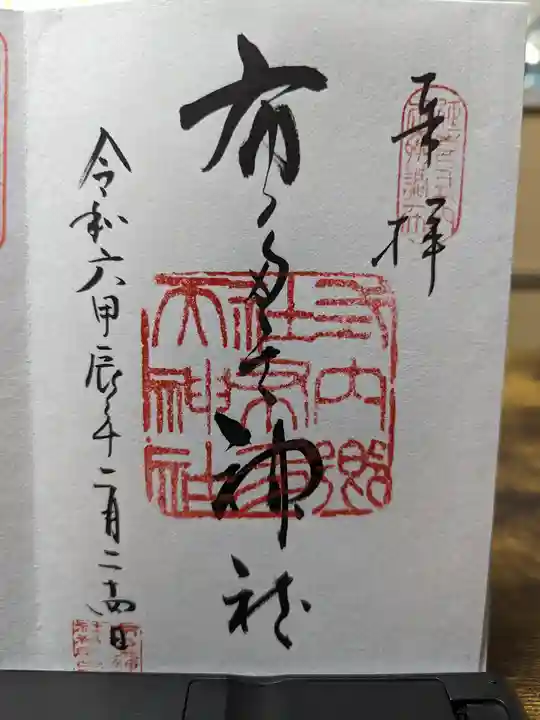 奉拝
布多天神社
式内郷
社布多
天神社
令和六甲辰年二月二十四日